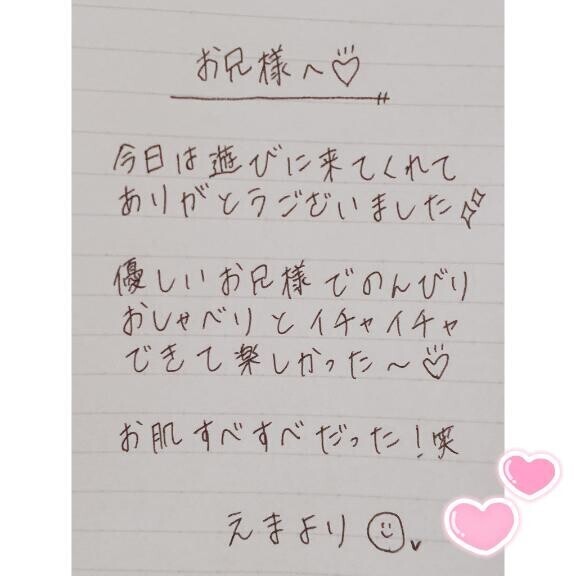 お兄様へ♡
今日は遊びに来てくれて
ありがとうございました
優しいお兄様でのんびり
おしゃべりとイチャイチャ
できて楽しかった〜♡
お肌すべすべだった!笑
えまより